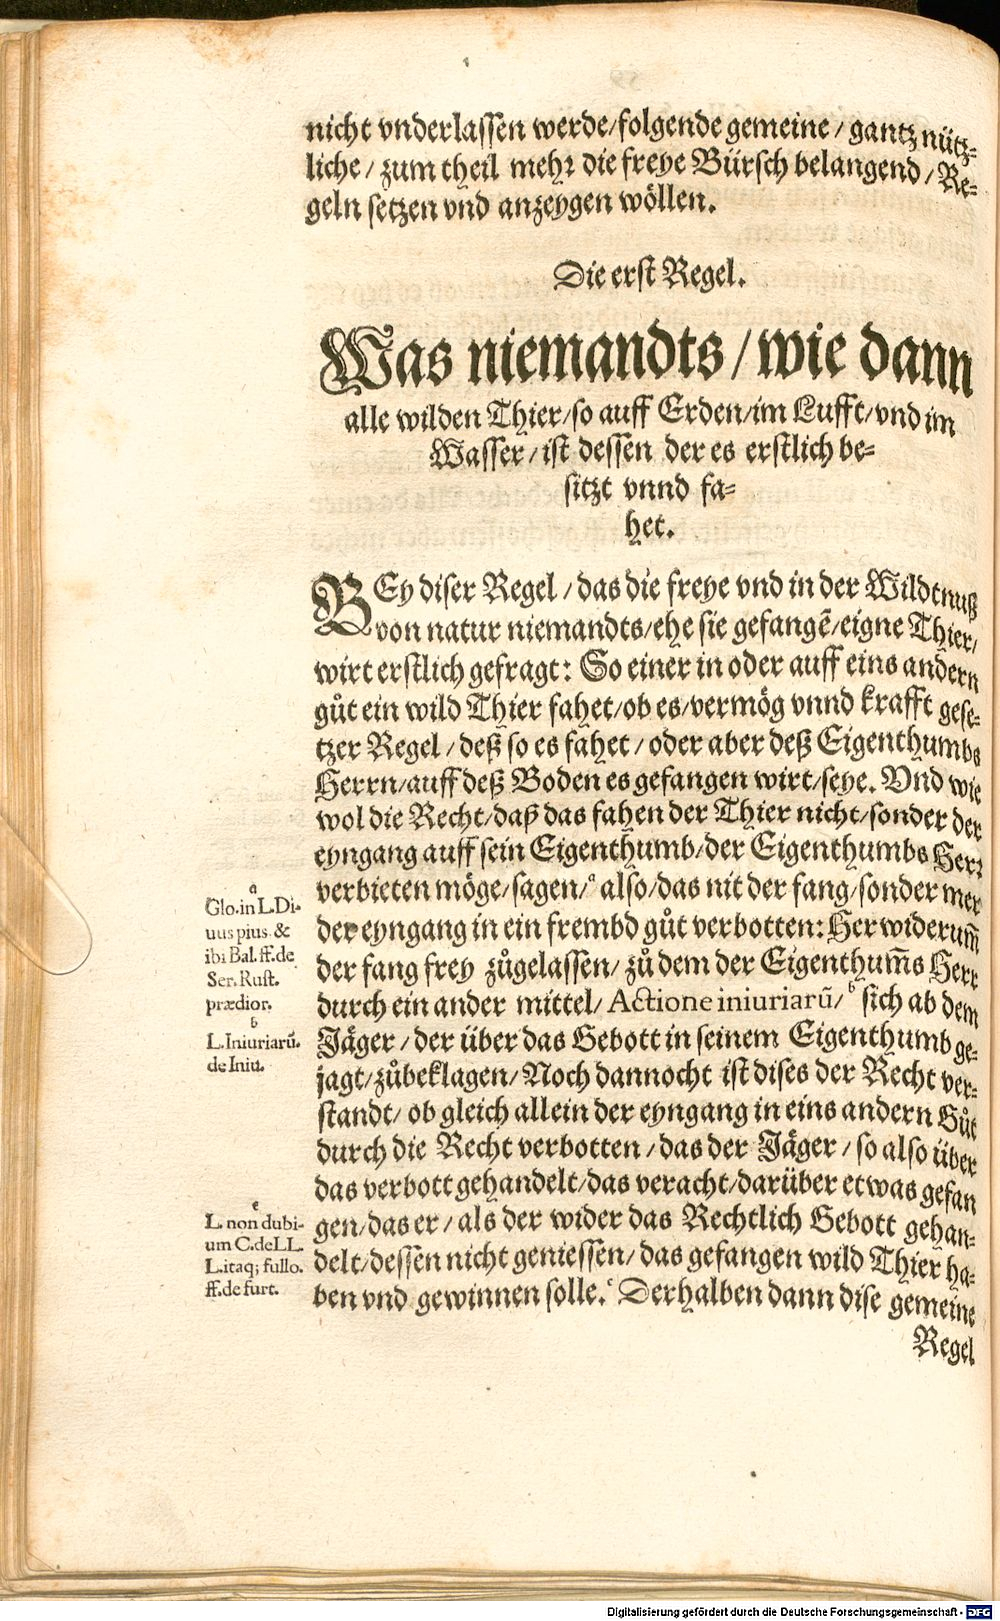 nicht vnderlassen werde/folgende gemeine / gantz nütz-
liche / zum theil mehr die freye Bürsch belangend / Re-
geln setzen vnd anzeygen wöllen.
Die erst Regel.
Was niemandts / wie dann
alle wilden Thier/so auff Erden/im Lufft/vnd im
Wasser / ist dessen der es erstlich be-
sitzt vnnd fa-
het.
BEy diser Regel / das die freye vnd in der Wildtnuß
von natur niemandts/ehe sie gefangē/eigne Thier/
wirt erstlich gefragt: So einer in oder auff eins andern
gůt ein wild Thier fahet/ob es/vermög vnnd krafft gese-
tzer Regel / deß so es fahet / oder aber deß Eigenthumbs
Herrn/auff deß Boden es gefangen wirt/seye. Vnd wie
wol die Recht/daß das fahen der Thier nicht/sonder der
eyngang auff sein Eigenthumb/der Eigenthumbs Herr
verbieten möge/sagen/ᵃ also/das nit der fang/sonder mer
der eyngang in ein frembd gůt verbotten: Herwiderum̄
der fang frey zůgelassen/zů dem der Eigenthum̄s Herr
durch ein ander mittel/ Actione iniuriarū/ᵇ sich ab dem
Jäger / der über das Gebott in seinem Eigenthumb ge-
jagt/zůbeklagen/Noch dannocht ist dises der Recht ver-
standt/ ob gleich allein der eyngang in eins andern Gůt
durch die Recht verbotten / das der Jäger / so also über
das verbott gehandelt/das veracht/darüber etwas gefan
gen/das er/als der wider das Rechtlich Gebott gehan-
delt/dessen nicht geniessen/das gefangen wild Thier ha-
ben vnd gewinnen solle.ᶜ Derhalben dann dise gemeine
Regel
a
Glo. in L. Di-
uus pius. &
ibi Bal. ff. de
Ser. Rust.
prædior.
b
L. Iniuriarū.
de Iniu.
c
L. non dubi-
um C. de LL.
L. itaq; fullo.
ff. de furt.
Digitalisierung gefördert durch die Deutsche Forschungsgemeinschaft - DFG